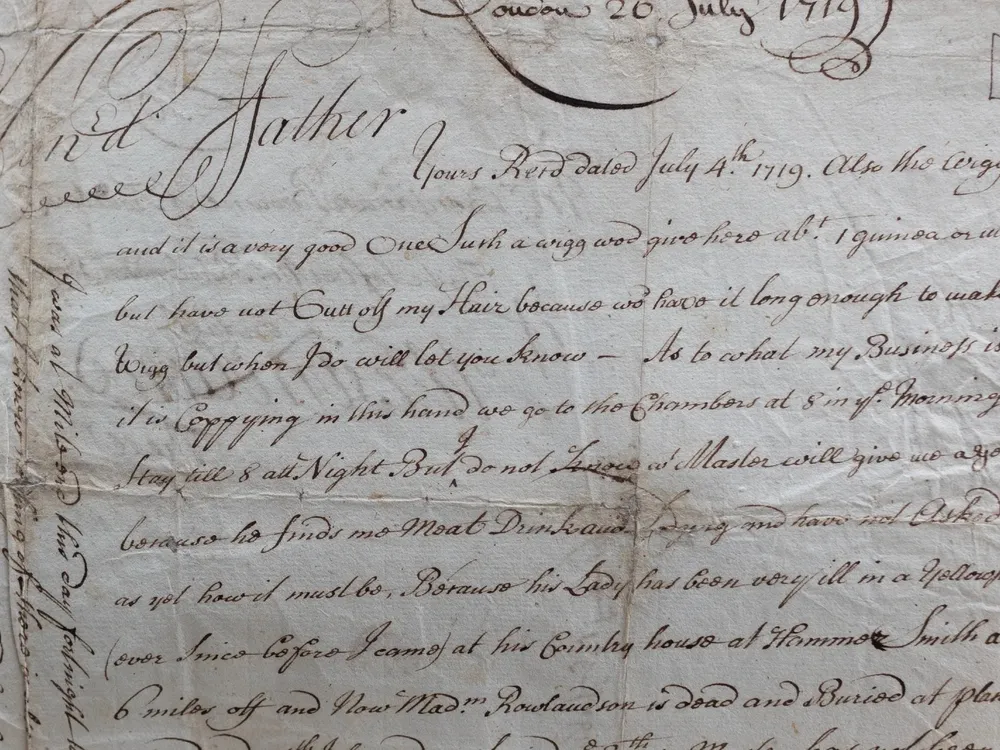 London 26 July 1719
Hon.rd Father
Yours Recd dated July 4.th 1719. Also the Wigg
and it is a very good One Such a wigg wod give here ab.t 1 guinea or
but have not Cutt off my Hair because wod have it long enough to mak
Wigg but when I do will let you know – As to what my Business is
it is Coppying in this hand we go to the Chambers at 8 in y.e Morning
Stay till 8 att Night But I do not know w.t Master will give me a ye
because he finds me Meat Drink and and have not Asked
as yet how it must be, Because his Lady has been very ill in a Yellow
(ever since before I came) at his Country house at Hammer Smith a
6 miles off and Now Mad.m Rowlandson is dead and Buried at
I was at Mile end this day fortnight